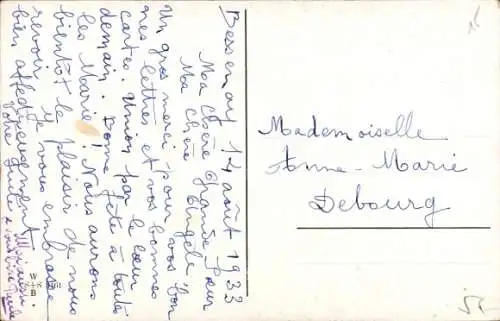 Bessenay 14 août 1933
Ma chère Grande Sœur
Ma chère Angèle
Un gros merci pour vos bon
nes lettres et vos bonnes
cartes. Union par le cœur
demain. Bonne fête à toutes
les Marie! Nous aurons
bientôt le plaisir de nous
revoir je vous embrasse
bien affectueusement
Votre
Mademoiselle
Anne-Marie
Debourg